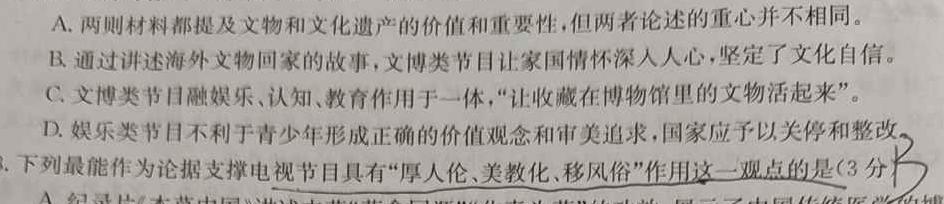 A. 两则材料都提及文物和文化遗产的价值和重要性,但两者论述的重心并不相同。
B. 通过讲述海外文物回家的故事,文博类节目让家国情怀深入人心,坚定了文化自信。
C. 文博类节目融娱乐、认知、教育作用于一体,“让收藏在博物馆里的文物活起来”。
D. 娱乐类节目不利于青少年形成正确的价值观念和审美追求,国家应予以关停和整改。
3. 下列最能作为论据支撑电视节目具有“厚人伦、美教化、移风俗”作用这一观点的是(3分) B